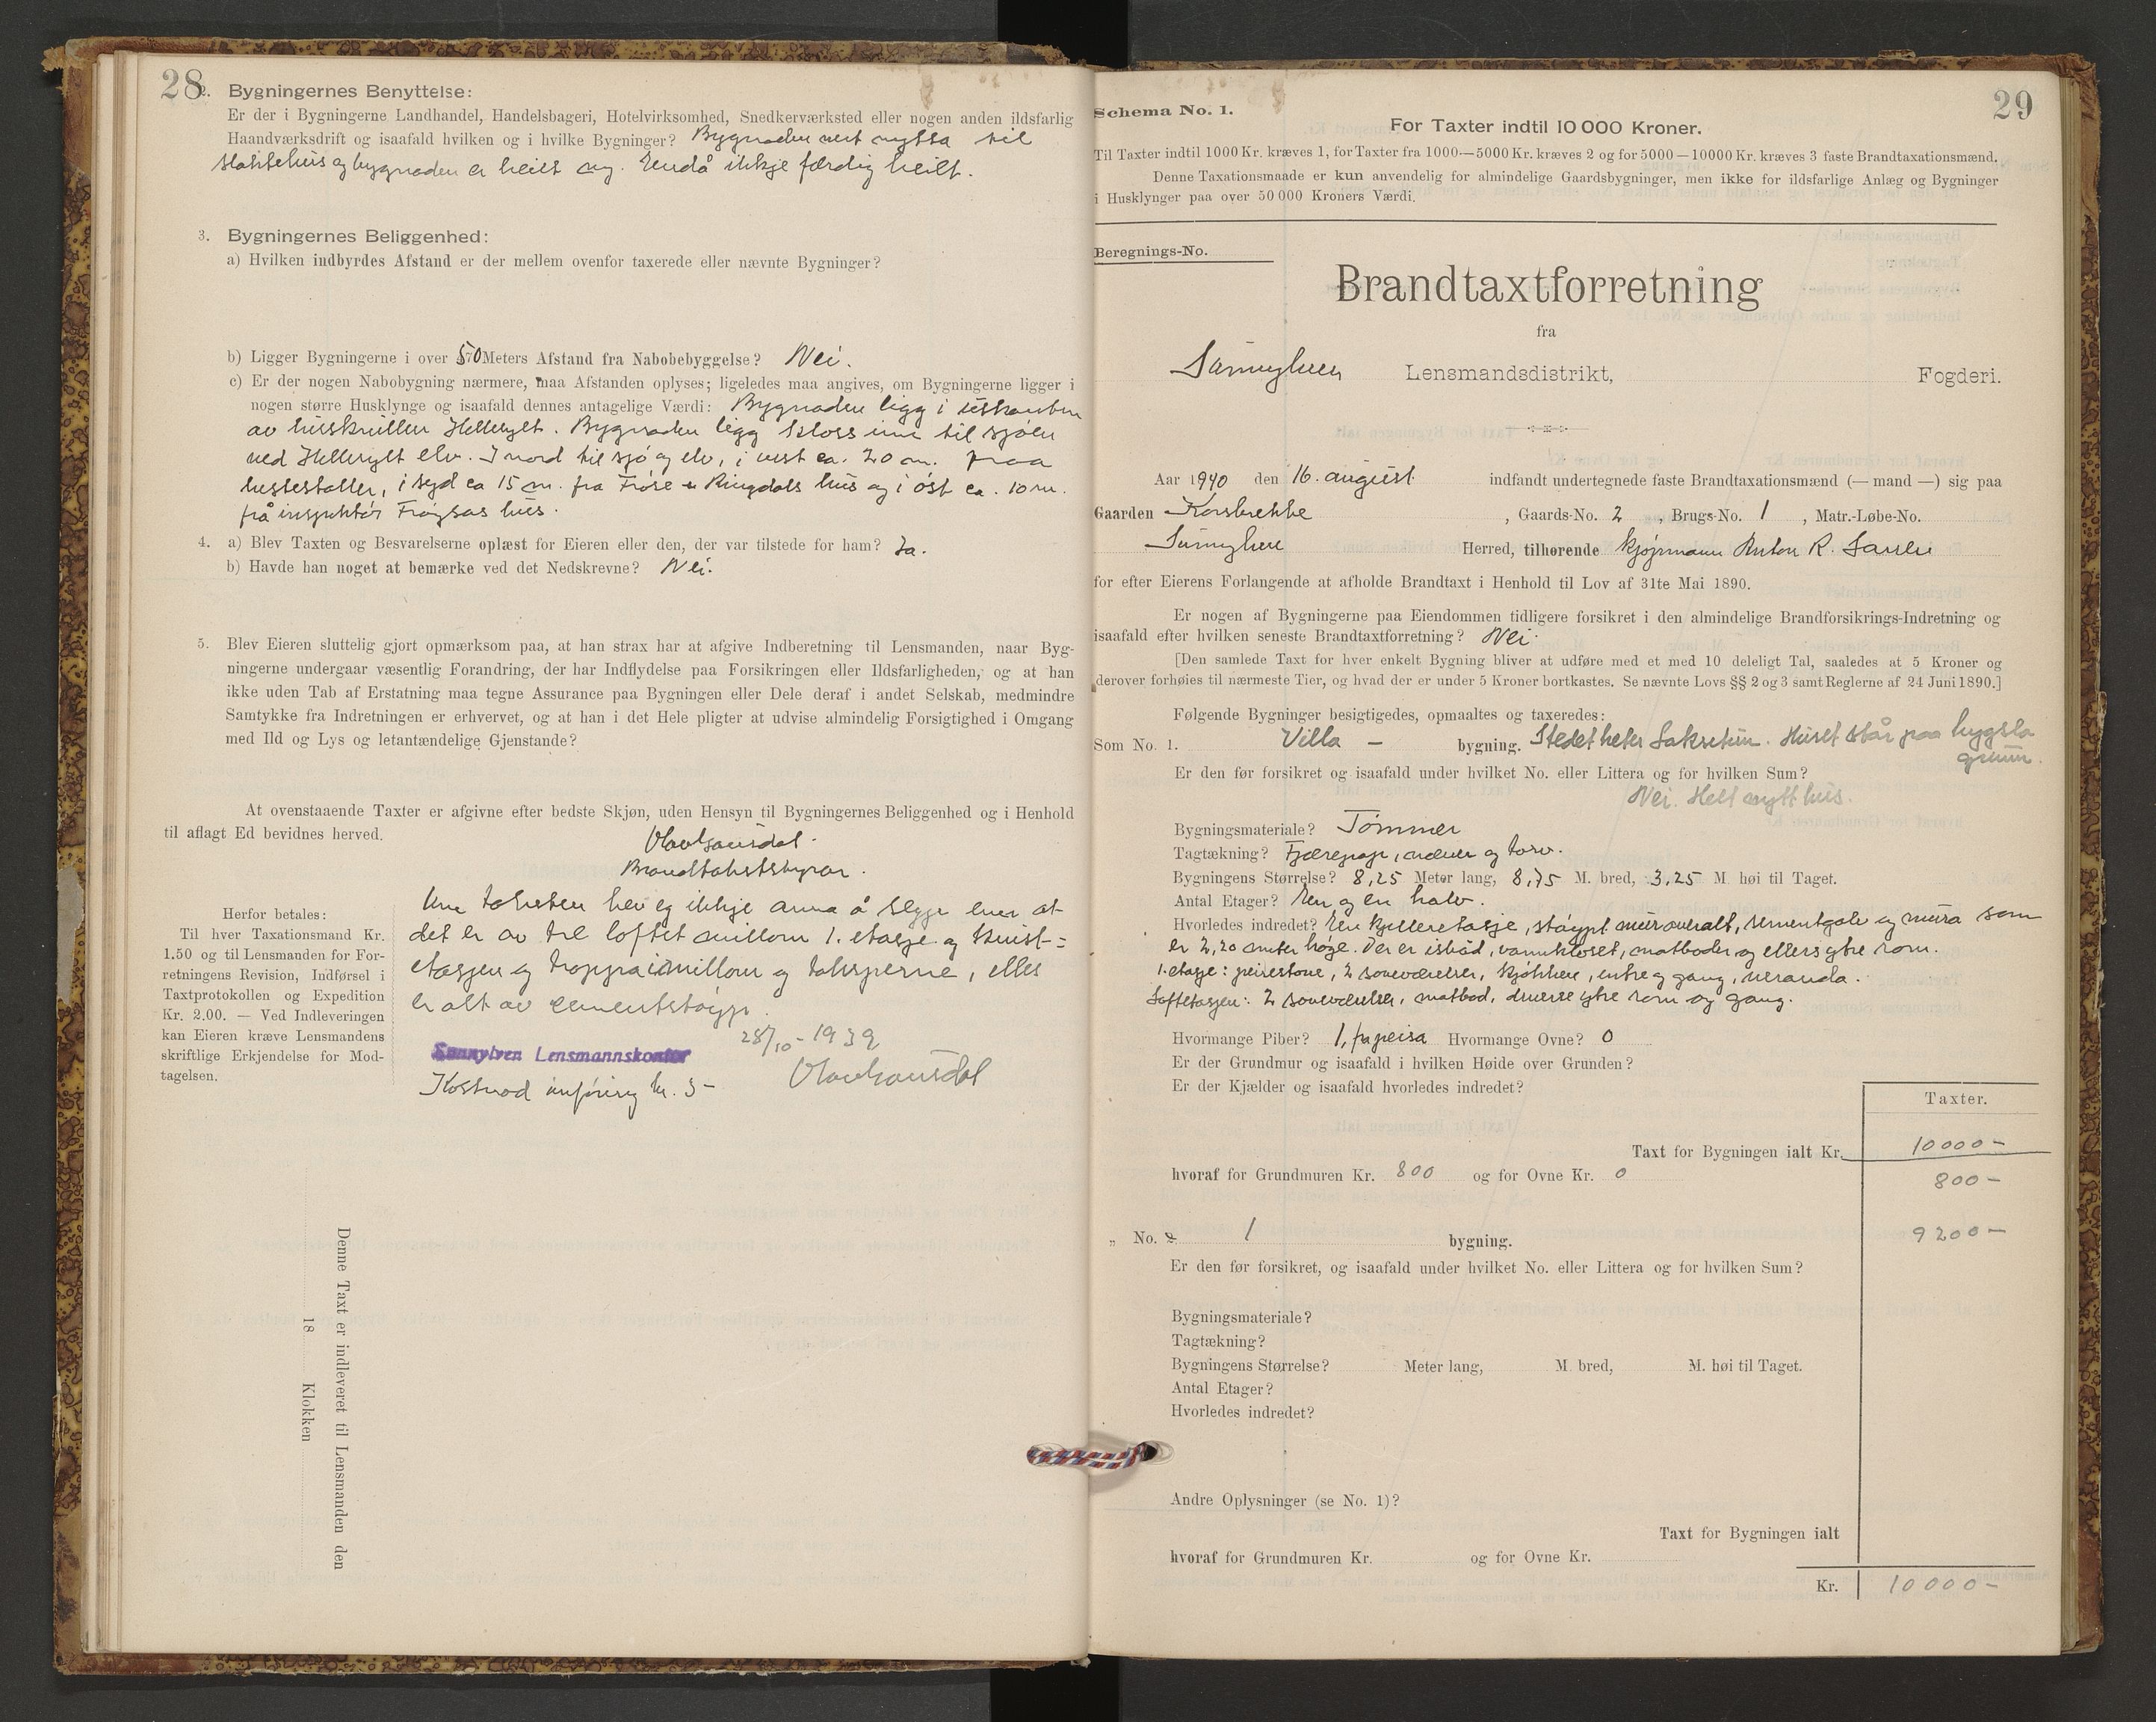 28
2. Bygningernes Benyttelse:
Er der i Bygningerne Landhandel, Handelsbageri, Hotelvirksomhed, Snedkerværksted eller nogen anden ildsfarlig
Haandværksdrift og isaafald hvilken og i hvilke Bygninger? Bygnaden vert nytta til
og bygnaden er heilt ny. Endå ikkje færdig heilt.
3. Bygningernes Beliggenhed:
a) Hvilken indbyrdes Afstand er der mellem ovenfor taxerede eller nævnte Bygninger?
b) Ligger Bygningerne i over 50 Meters Afstand fra Nabobebyggelse? Nei.
c) Er der nogen Nabobygning nærmere, maa Afstanden oplyses; ligeledes maa angives, om Bygningerne ligger i
nogen større Husklynge og isaafald dennes antagelige Værdi: Bygnaden ligg i utkanten
av Hellesylt. Bygnaden ligg kloss inn til sjøen
ved Hellesylt elv. I nord til sjø og elv, i vest ca. 20 m. fraa
hestestaller, i syd ca 15 m. fra Ringdals hus og i øst ca. 10 m.
frå inspektør hus.
4. a) Blev Taxten og Besvarelserne oplæst for Eieren eller den, der var tilstede for ham? Ja.
b) Havde han noget at bemærke ved det Nedskrevne? Nei.
5. Blev Eieren sluttelig gjort opmærksom paa, at han strax har at afgive Indberetning til Lensmanden, naar Byg-
ningerne undergaar væsentlig Forandring, der har Indflydelse paa Forsikringen eller Ildsfarligheden, og at han
ikke uden Tab af Erstatning maa tegne Assurance paa Bygningen eller Dele deraf i andet Selskab, medmindre
Samtykke fra Indretningen er erhvervet, og at han i det Hele pligter at udvise almindelig Forsigtighed i Omgang
med Ild og Lys og letantændelige Gjenstande?
At ovenstaaende Taxter er afgivne efter bedste Skjøn, uden Hensyn til Bygningernes Beliggenhed og i Henhold
til aflagt Ed bevidnes herved.
Herfor betales:
Til hver Taxationsmand Kr.
1.50 og til Lensmanden for For-
retningens Revision, Indførsel i
Taxtprotokollen og Expedition
Kr. 2.00. — Ved Indleveringen
kan Eieren kræve Lensmandens
skriftlige Erkjendelse for Mod-
tagelsen.
Um taksten hev eg ikkje anna å segja enn at
det er av tre loftet millom 1. etasje og kvist-
etasjen og trappa imillom og taksperrene, elles
er alt av cementstøyp.
28/10 - 1939
Sunnylven Lensmannskontor
Kostnad innføring kr. 5-
Denne Taxt er indleveret til Lensmanden den
18 Klokken
29
Schema No. 1.
For Taxter indtil 10 000 Kroner.
Til Taxter indtil 1000 Kr. kræves 1, for Taxter fra 1000—5000 Kr. kræves 2 og for 5000—10000 Kr. kræves 3 faste Brandtaxationsmænd.
Denne Taxationsmaade er kun anvendelig for almindelige Gaardsbygninger, men ikke for ildsfarlige Anlæg og Bygninger
i Husklynger paa over 50 000 Kroners Værdi.
Beregnings-No.
Brandtaxtforretning
fra
Sunnylven Lensmandsdistrikt, Fogderi.
Aar 1940 den 16. august indfandt undertegnede faste Brandtaxationsmænd (— mand —) sig paa
Gaarden Korsbrekke, Gaards-No. 2, Brugs-No. 1, Matr.-Løbe-No.
Sunnylven Herred, tilhørende kjøpmann Anton R.
for efter Eierens Forlangende at afholde Brandtaxt i Henhold til Lov af 31te Mai 1890.
Er nogen af Bygningerne paa Eiendommen tidligere forsikret i den almindelige Brandforsikrings-Indretning og
isaafald efter hvilken seneste Brandtaxtforretning? Nei.
[Den samlede Taxt for hver enkelt Bygning bliver at udføre med et med 10 deleligt Tal, saaledes at 5 Kroner og
derover forhøies til nærmeste Tier, og hvad der er under 5 Kroner bortkastes. Se nævnte Lovs §§ 2 og 3 samt Reglerne af 24 Juni 1890.]
Følgende Bygninger besigtigedes, opmaaltes og taxeredes:
Som No. 1. Villa - bygning. Stedet heter Huset står paa bygsla
grunn.
Er den før forsikret og isaafald under hvilket No. eller Littera og for hvilken Sum?
Nei. Helt nytt hus.
Bygningsmateriale? Tømmer
Tagtækning? never og torv.
Bygningens Størrelse? 8,25 Meter lang, 8,75 M. bred, 3,25 M. høi til Taget.
Antal Etager? Ein og en halv.
Hvorledes indredet? Ein kjelleretasje, støypt mur overalt, sementgolv og mura som
er 2,20 meter høge. Der er vannkloset, matboder og ellers ytre rom.
1. etasje: peisestove, 2 soveværelser, kjøkken, entre og gang, veranda.
Loftetasjen: 2 soveværelser, matbod, diverse ytre rom og gang.
Hvormange Piber? 1, Hvormange Ovne? 0
Er der Grundmur og isaafald i hvilken Høide over Grunden?
Er der Kjælder og isaafald hvorledes indredet?
Taxter.
Taxt for Bygningen ialt Kr. 10000 -
hvoraf for Grundmuren Kr. 800 og for Ovne Kr. 0 800 -
„ No. 2 1 bygning. 9200 -
Er den før forsikret, og isaafald under hvilket No. eller Littera og for hvilken Sum?
Bygningsmateriale?
Tagtækning?
Bygningens Størrelse? Meter lang, M. bred, M. høi til Taget.
Antal Etager?
Hvorledes indredet?
Andre Oplysninger (se No. 1)?
Taxt for Bygningen ialt
hvoraf for Grundmuren Kr. og for Ovne Kr.
Kr. 10000 -